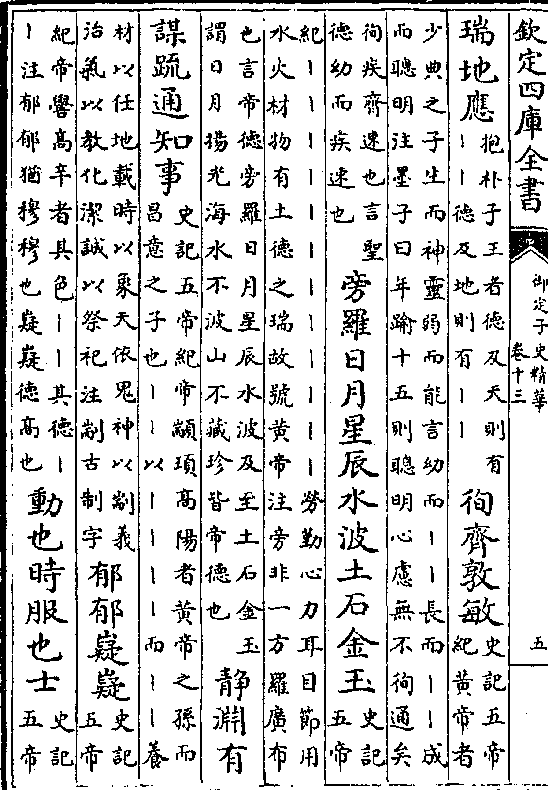 欽定四庫全書
御定子史精華
卷十三
五
瑞地應
抱朴子王者德及天則有
丨丨德及地則有丨丨
徇齊敦敏
史記五帝
紀黃帝者
少典之子生而神靈弱而能言幼而丨丨長而丨丨成
而聰明注墨子曰年踰十五則聰明心慮無不徇通矣
徇疾齊速也言聖
德幼而疾速也
旁羅日月星辰水波土石金玉
史記
五帝
紀丨丨丨丨丨丨丨丨丨丨丨丨勞勤心力耳目節用
水火材物有土德之瑞故號黃帝注旁非一方羅廣布
也言帝德旁羅日月星辰水波及至土石金玉
謂日月揚光海水不波山不藏珍皆帝德也
靜淵有
謀疏通知事
史記五帝紀帝顓頊高陽者黃帝之孫而
昌意之子也丨丨以丨丨丨丨而丨丨養
材以任地載時以象天依鬼神以剬義
治氣以教化潔誠以祭祀注剬古制字
郁郁嶷嶷
史記
五帝
紀帝嚳高辛者其色丨丨其德丨
丨注郁郁猶穆穆也嶷嶷德高也
動也時服也士
史記
五帝